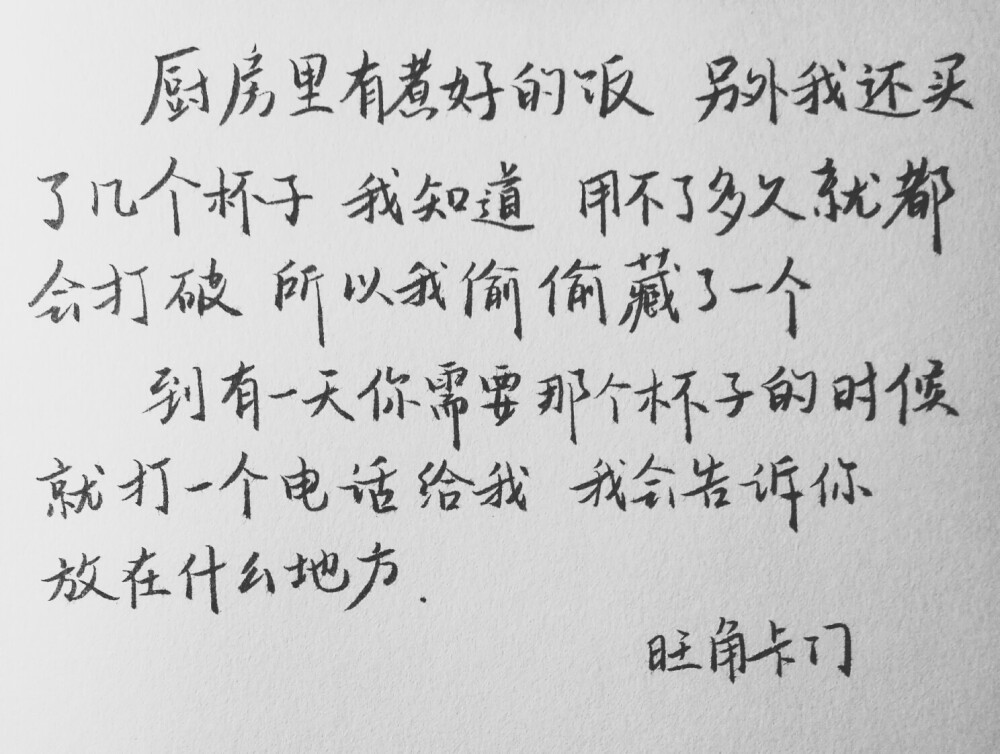 厨房里有煮好的饭 另外我还买
了几个杯子 我知道 用不了多久就都
会打破 所以我偷偷藏了一个
到有一天你需要那个杯子的时候
就打一个电话给我 我会告诉你
放在什么地方.
旺角卡门